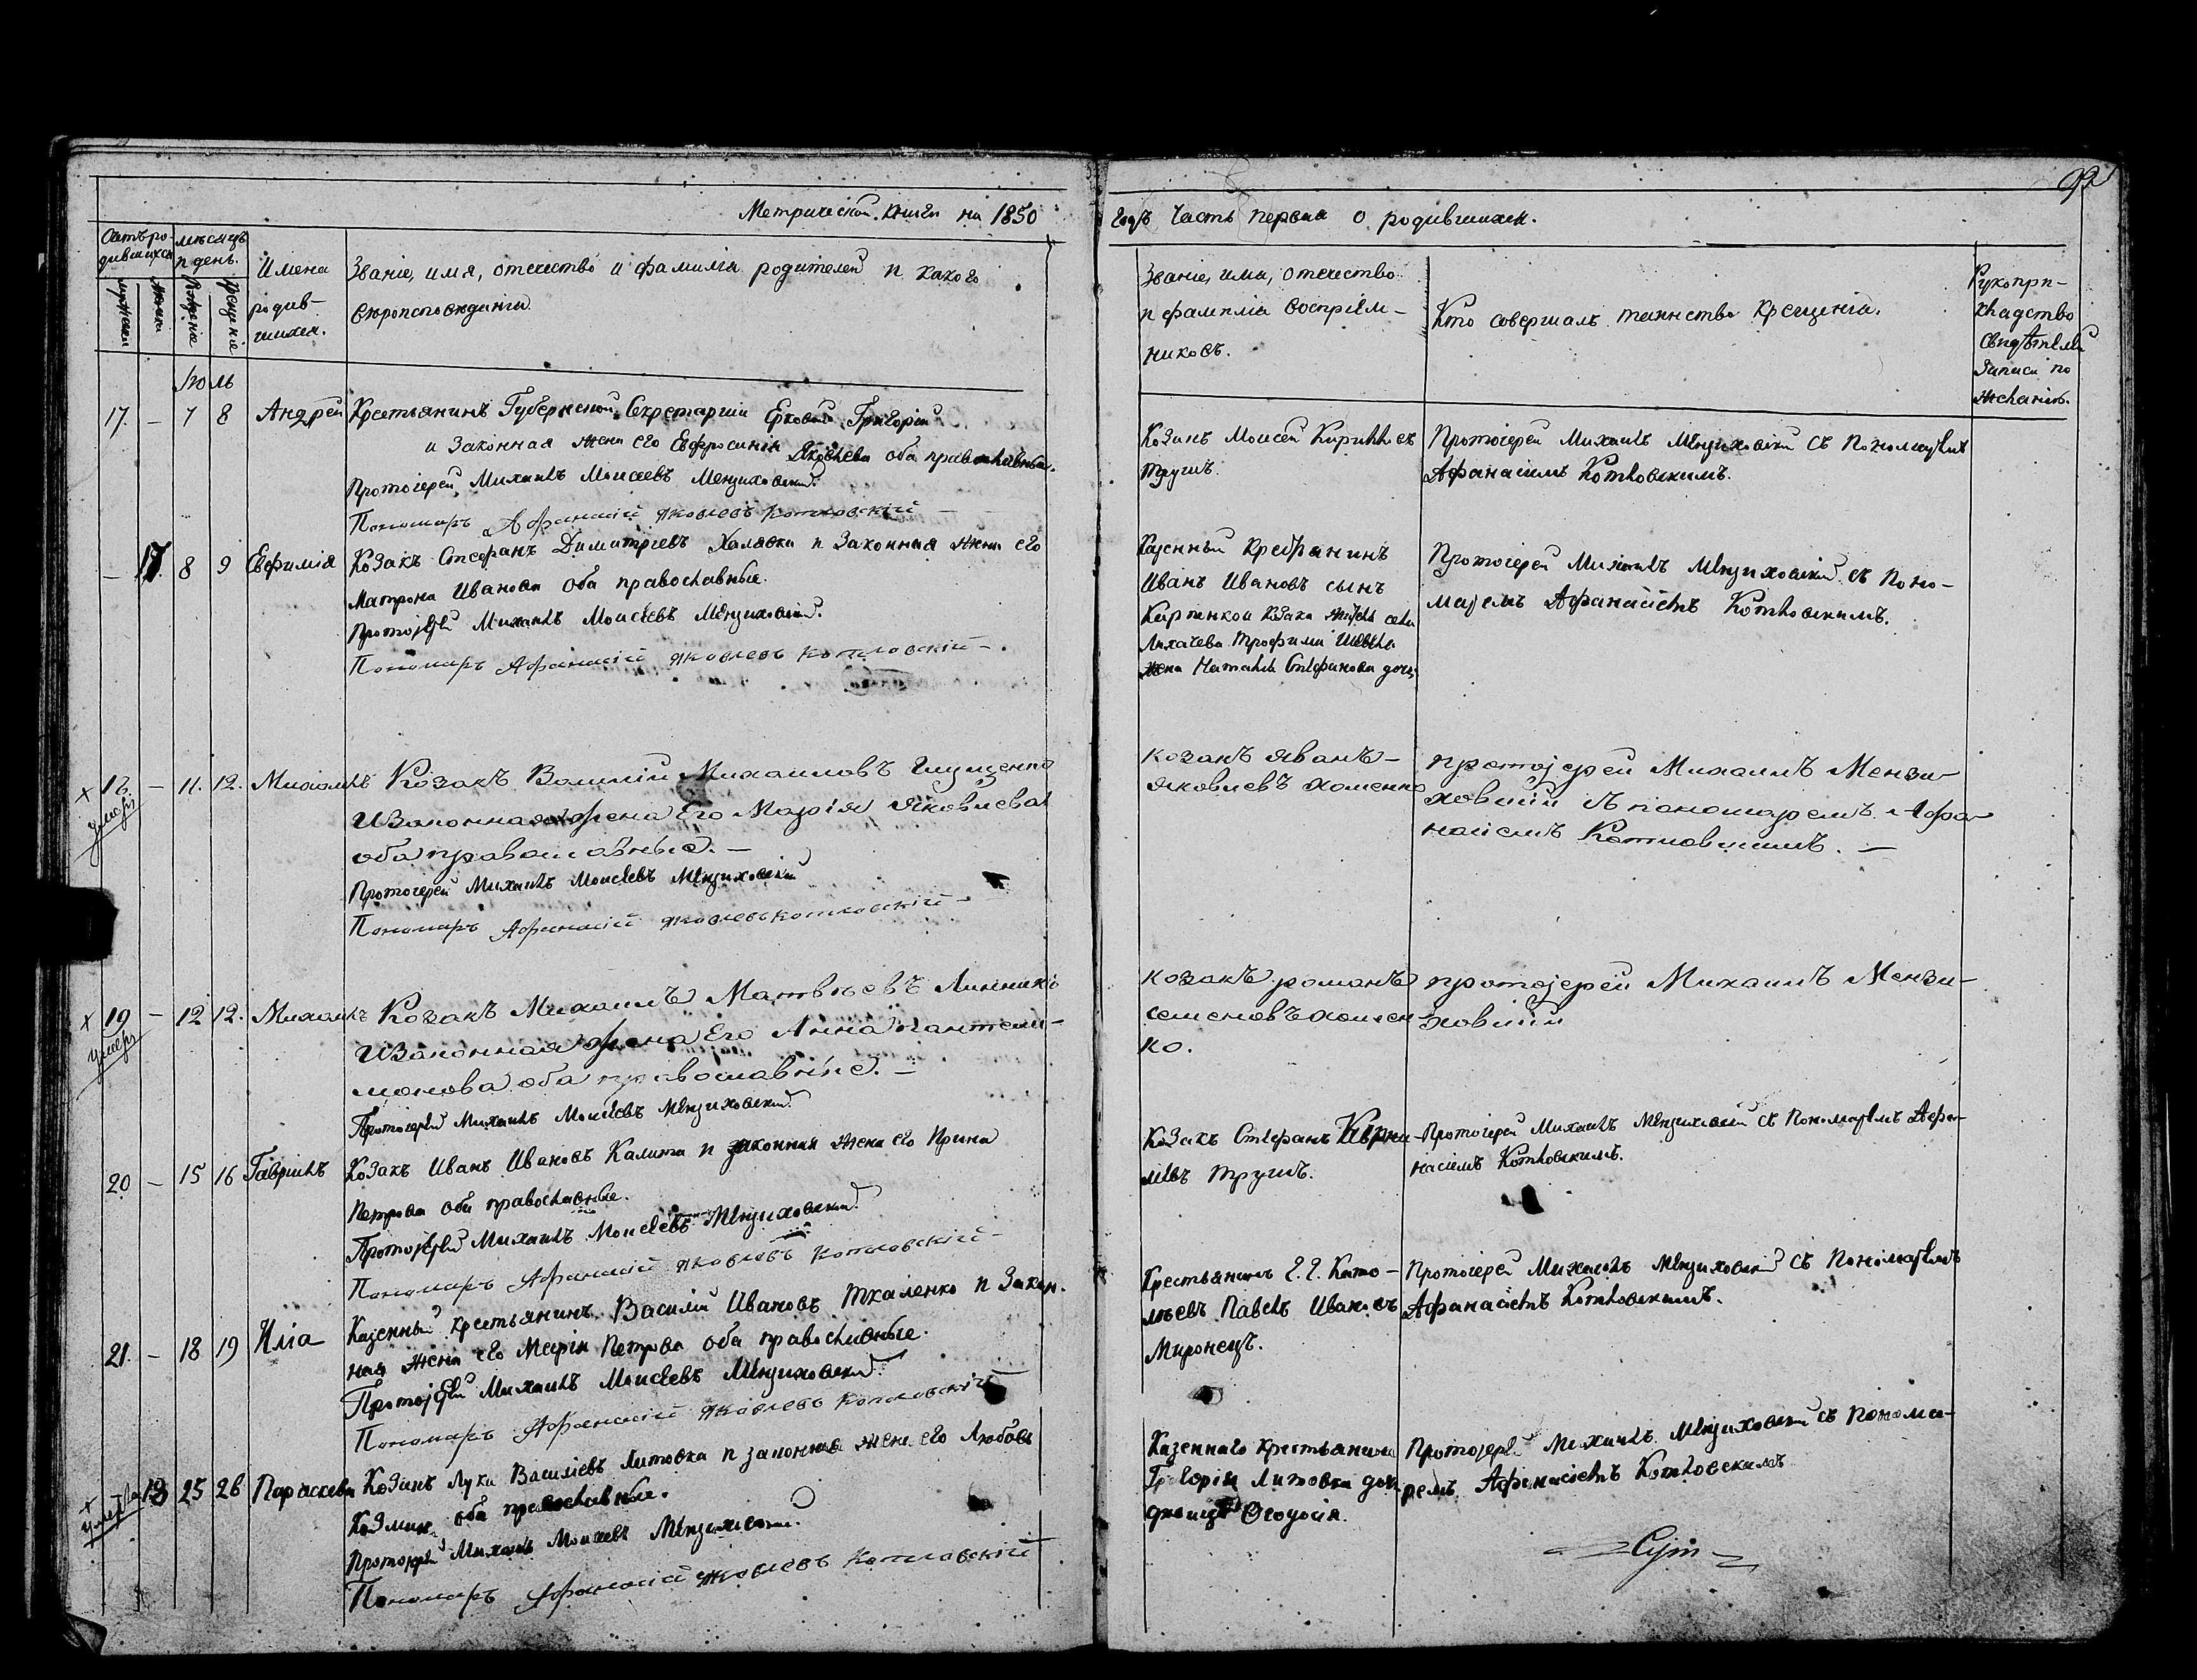 92
Метрической книги на 1850
годъ Часть первая о родившихся.
Счетъ ро-
дившихся
мѣсяцъ
и день.
мужеска
женска
рожденіе
крещеніе
Имена
родив-
шихся.
Званіе, имя, отечество и фамилія родителей и какого
вѣроисповѣданія.
Званіе, имя, отечество
и фамилія воспріем-
никовъ.
Кто совершалъ таинство крещенія.
Рукопри-
кладство
свидѣтелей
записи по
желанію.
Іюль
17. – 7 8 Андрей
Крестьянинъ Губернской Секретарши Григорій
и законная жена его Евфросинія Яковлева оба православные.
Протоіерей Михаилъ Моисеевъ Мензиховскій.
Пономаръ Афанасій Яковлевъ Котловскій –
Козакъ Моисей Кирилловъ
Трушъ.
Протоіерей Михаилъ Мензиховскій съ Пономаремъ
Афанасіемъ Котловскимъ.
– 17. 8 9 Евфимія
Козакъ Стефанъ Димитріевъ Халявка и законная жена его
Матрона Иванова оба православные.
Протоjерей Михаилъ Моисеевъ Мензиховскій.
Пономаръ Афанасій Яковлевъ Котловскій –
Казенный крестьянинъ
Иванъ Ивановъ сынъ
козака села
Лихачева Трофима
жена Наталія Стефанова дочь
Протоіерей Михаилъ Мензиховскій съ Поно-
маремъ Афанасіемъ Котловскимъ.
х 18. – 11. 12. Михаилъ
умеръ
Козакъ Василій Михаиловъ Гнущенко
И Законная Жена Его Марія Яковлева
оба православные. –
Протоіерей Михаилъ Моисеевъ Мензиховскій
Пономаръ Афанасій Яковлевъ Котловскій –
козакъ иванъ –
яковлевъ хоменко
протоjерей Михаилъ Мензи-
ховскій съ пономаремъ Афа-
насіемъ Котловскимъ. –
х 19 – 12 12. Михаилъ
умеръ
Козакъ Михаилъ Матвѣевъ Линникъ
И Законная Жена Его Анна пантели-
монова оба православные. –
Протоіерей Михаилъ Моисеевъ Мензиховскій.
козакъ романъ
семеновъ хомен-
ко.
протоjерей Михаилъ Мензи-
ховскій
20 – 15 16 Гавріилъ
Козакъ Иванъ Ивановъ Калита и законная жена его Ирина
Петрова оба православные.
Протоjерей Михаилъ Моисеевъ Мензиховскій.
Пономаръ Афанасій Яковлевъ Котловскій –
Козакъ Стефанъ Кири-
ловъ Трушъ.
Протоіерей Михаилъ Мензиховскій съ Пономаремъ Афа-
насіемъ Котловскимъ.
21. – 18 19 Илія
Казенный крестьянинъ Василій Ивановъ Ткаленко и закон-
ная жена его Марія Петрова оба православные.
Протоjерей Михаилъ Моисеевъ Мензиховскій.
Пономаръ Афанасій Яковлевъ Котловскій
Крестьянинъ
Павелъ Ивановъ
Миронецъ.
Протоіерей Михаилъ Мензиховскій съ Пономаремъ
Афанасіемъ Котловскимъ.
х 18 25 26 Параскева
умерла
Козакъ Лука Василіевъ Литовка и законная жена его Любовь
Козмина оба православные.
Протоjерей Михаилъ Моисеевъ Мензиховскій.
Пономаръ Афанасій Яковлевъ Котловскій
Казеннаго крестьянина
Григорія Литовки дочь
дѣвица Феодосія.
Протоjерей Михаилъ Мензиховскій съ Понома-
ремъ Афанасіемъ Котловскимъ